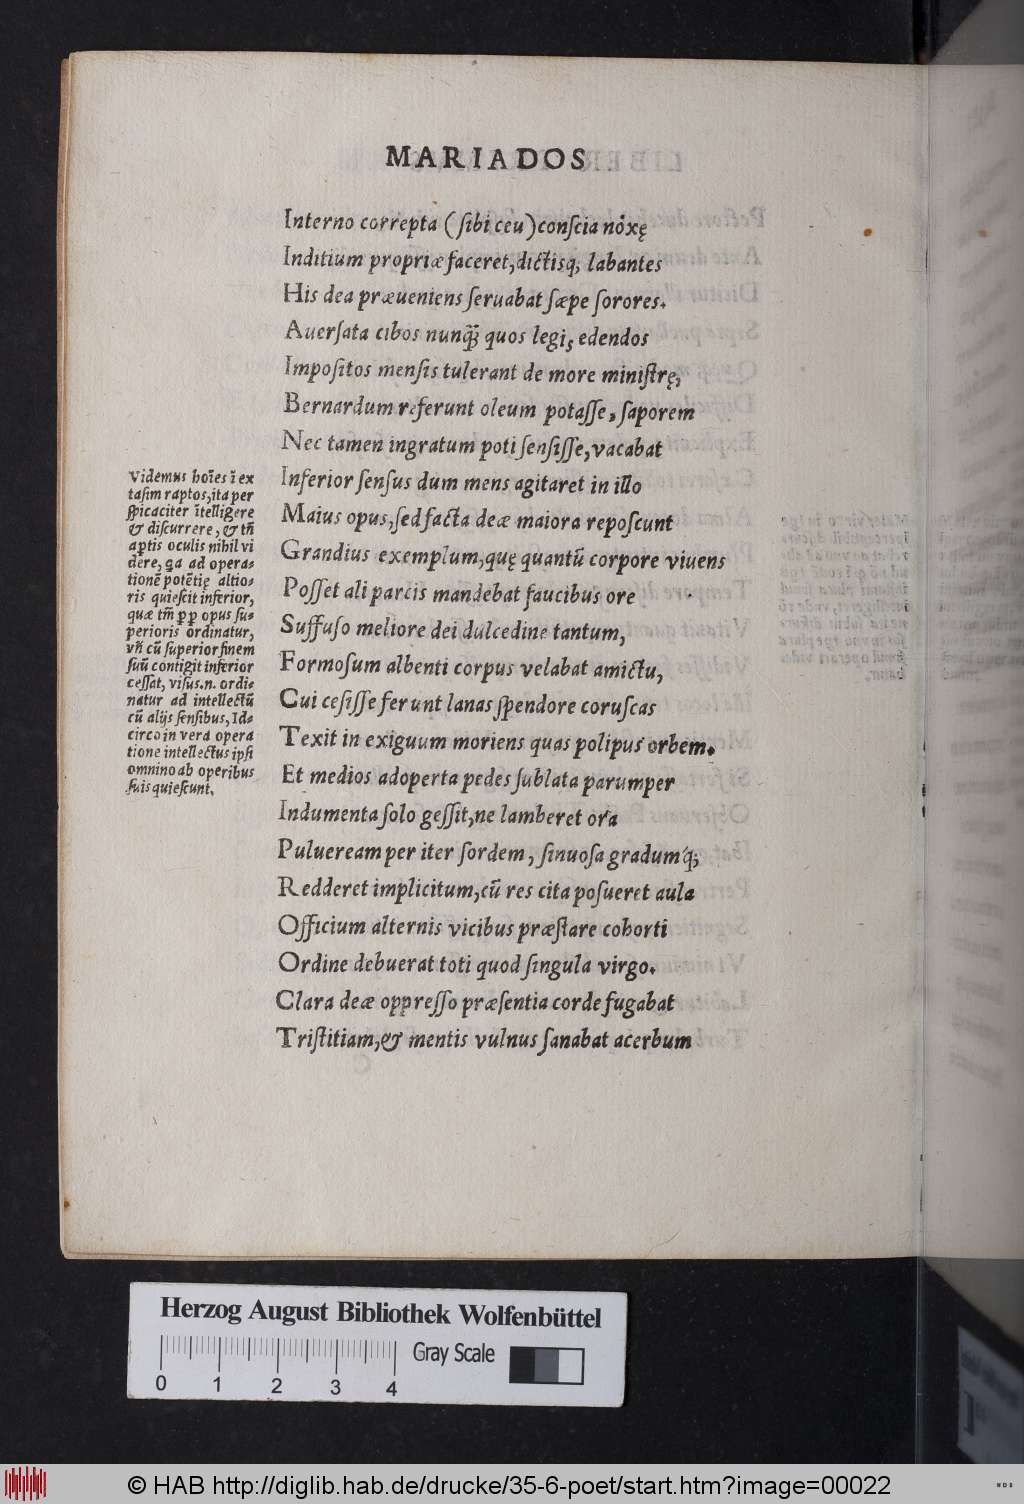 MARIADOS
Interno correpta (ſibi ceu) conſcia noxę
Inditium propriæ faceret, dictisq; labantes
His dea præueniens ſeruabat ſæpe ſorores.
Auerſata cibos nunq̃ꝫ quos legiꝫ edendos
Impoſitos menſis tulerant de more miniſtrę,
Bernardum referunt oleum potaſſe, ſaporem
Nec tamen ingratum poti ſenſiſſe, vacabat
Inferior ſenſus dum mens agitaret in illo
Maius opus, ſed facta deæ maiora repoſcunt
Grandius exemplum, quę quantũ corpore viuens
Poſſet ali parcis mandebat faucibus ore
Suffuſo meliore dei dulcedine tantum,
Formoſum albenti corpus velabat amictu,
Cui ceſiſſe ferunt lanas ſpendore coruſcas
Texit in exiguum moriens quas polipus orbem.
Et medios adoperta pedes ſublata parumper
Indumenta ſolo geſſit, ne lamberet ora
Puluеream per iter ſordem, ſinuoſa gradumq́;
Redderet implicitum, cũ res cita poſueret aula
Officium alternis vicibus præſtare cohorti
Ordine debuerat toti quod ſingula virgo.
Clara deæ oppreſſo præſentia corde fugabat
Triſtitiam, & mentis vulnus ſanabat acerbum
Videmus hoĩes ĩ ex
taſim raptos, ita per
ſpicaciter ĩtelligere
& diſcurrere, & tñ
aptis oculis nihil vi
dere, qa ad opera-
tionẽ potẽtię altio-
ris quieſcit inferior,
quæ tm̃ ꝓ ꝑ opus ſu-
perioris ordinatur,
vñ cũ ſuperior finem
ſuũ contigit inferior
ceſſat, viſus.n. ordi-
natur ad intellectũ
cũ alijs ſenſibus, Id-
circo in vera opera
tione intellectus ipſi
omnino ab operibus
ſuis quieſcunt.
Herzog August Bibliothek Wolfenbüttel
Gray Scale
0 1 2 3 4
© HAB http://diglib.hab.de/drucke/35-6-poet/start.htm?image=00022